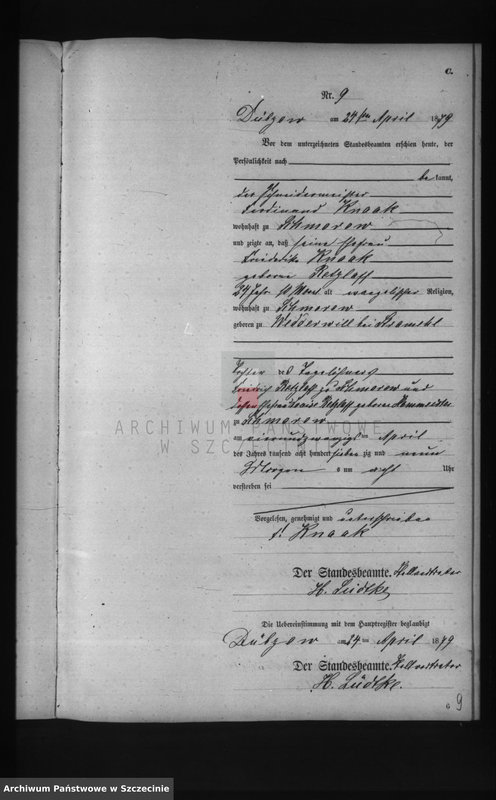 C.
Nr. 9
Dübzow am 24ten April 1879
Vor dem unterzeichneten Standesbeamten erschien heute, der
Persönlichkeit nach
be kannt,
der Schneidermeister
Ferdinand Knaak
wohnhaft zu Schmorow
und zeigte an, daß seine Ehefrau
Friederike Knaak
geborne Retzlaff
Jahr alt evangelischer Religion,
wohnhaft zu Schmorow
geboren zu Wedderwill bei
Tochter des Tagelöhners
Friedrich Retzlaff zu Schmorow und
dessen Ehefrau Louise Retzlaff geborne
zu Schmorow
am vierundzwanzigsten April
des Jahres tausend acht hundert sieben zig und neun
Morgens um acht Uhr
verstorben sei
Vorgelesen, genehmigt und unterschrieben
F. Knaak
Der Standesbeamte. Stellvertreter
H. Lüdtke
Die Uebereinstimmung mit dem Hauptregister beglaubigt
Dübzow am 24 ten April 1879
Der Standesbeamte. Stellvertreter
H. Lüdtke.
6
9
ARCHIWUM PAŃSTWOWE
W SZCZECINIE
Archiwum Państwowe w Szczecinie